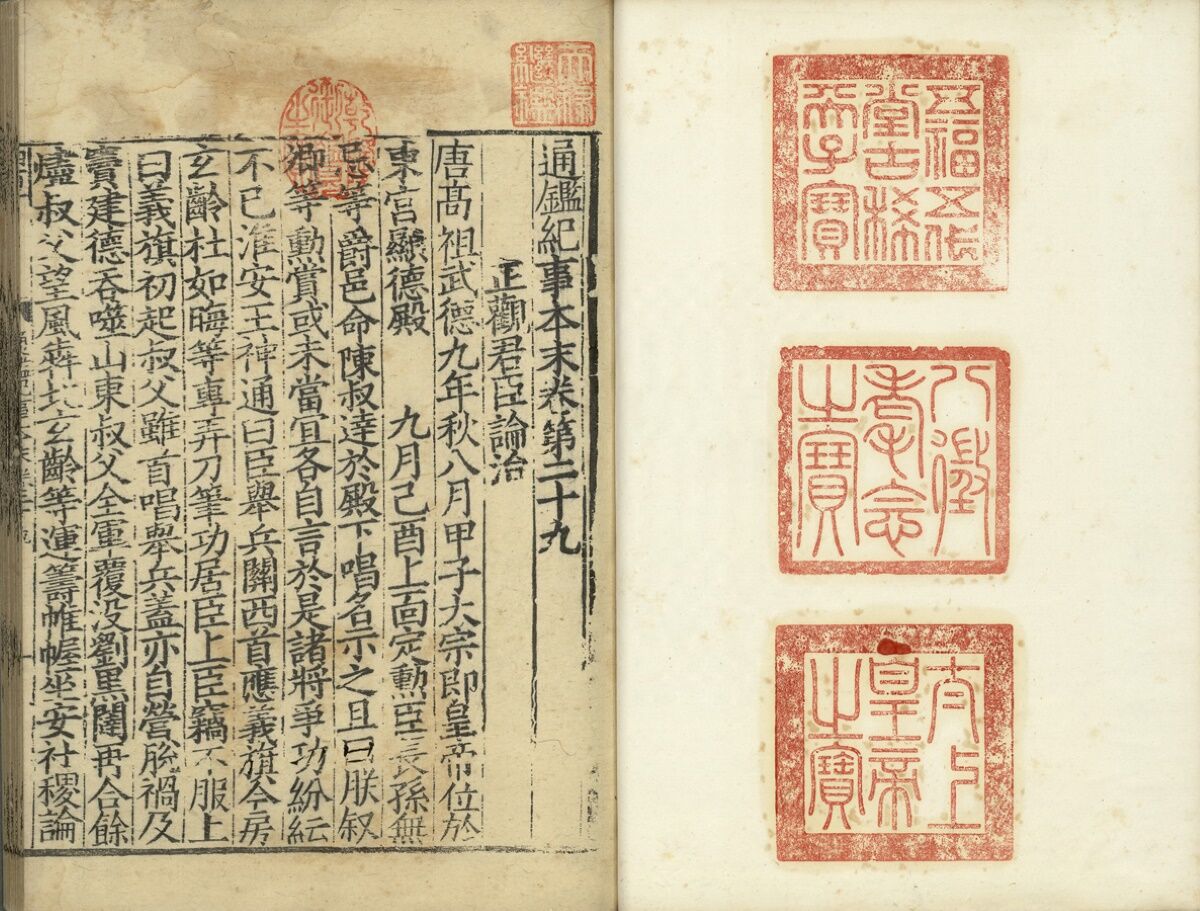 五福五代
堂古稀
天子寶
八徵
耄念
之寶
太上
皇帝
之寶
天祿
繼鑑
乾隆
御覽
之寶
通鑑紀事本末卷第二十九
正觀君臣論治
唐髙祖武德九年秋八月甲子大宗即皇帝位於
東宮顯德殿　九月己酉上面定勲臣長孫無
忌等爵邑命陳叔逹於殿下唱名示之且曰朕叙
卿等勳賞或未當冝各自言於是諸將爭功紛紜
不已淮安王神通曰臣舉兵關西首應義旗今房
玄齡杜如晦等專弄刀筆功居臣上臣竊不服上
曰義旗初起叔父雖首唱舉兵蓋亦自營脫禍及
竇建德吞噬山東叔父全軍覆没劉黒闥再合餘
燼叔父望風犇北玄齡等運籌帷幄坐安社稷論